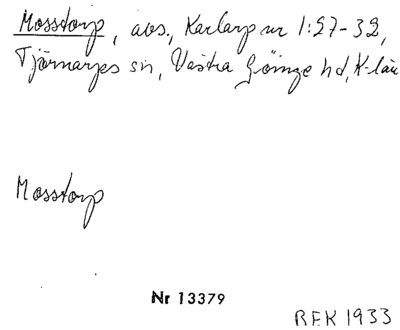 Mosstorp, avs., Karlarp nr 1:27-32,
Tjörnarps sn, Västra Göinge hd, K-län
Mosstorp
Nr 13379
REK 1933